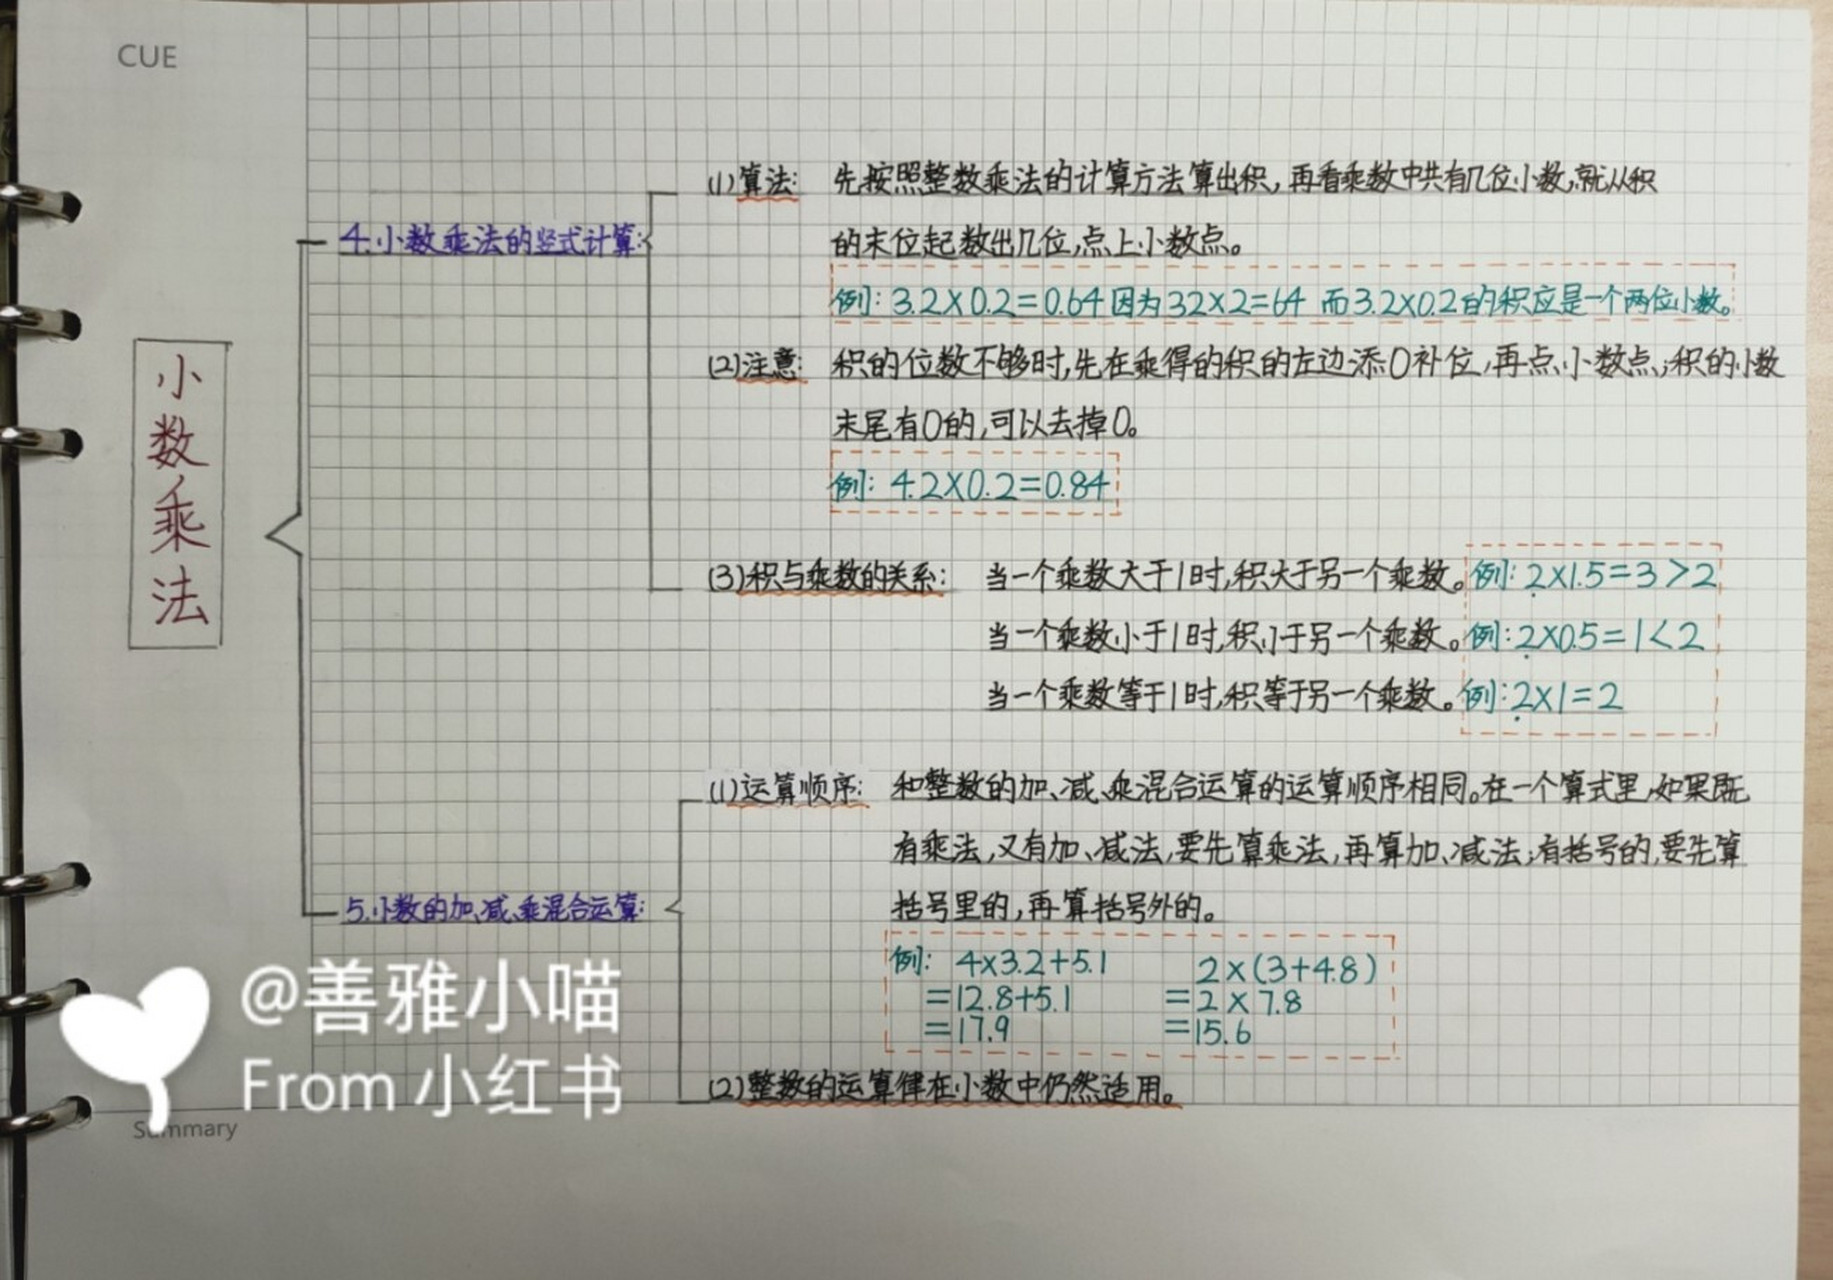 CUE
小数乘法
4.小数乘法的竖式计算:
(1)算法: 先按照整数乘法的计算方法算出积,再看乘数中共有几位小数,就从积
的末位起数出几位,点上小数点。
例: 3.2×0.2=0.64 因为32×2=64 而3.2×0.2的积应是一个两位小数。
(2)注意: 积的位数不够时,先在乘得的积的左边添0补位,再点小数点;积的小数
末尾有0的,可以去掉0。
例: 4.2×0.2=0.84
(3)积与乘数的关系: 当一个乘数大于1时,积大于另一个乘数。例: 2×1.5=3>2
当一个乘数小于1时,积小于另一个乘数。例: 2×0.5=1<2
当一个乘数等于1时,积等于另一个乘数。例: 2×1=2
5.小数的加、减、乘混合运算:
(1)运算顺序: 和整数的加、减、乘混合运算的运算顺序相同。在一个算式里,如果既
有乘法,又有加、减法,要先算乘法,再算加、减法;有括号的,要先算
括号里的,再算括号外的。
例: 4×3.2+5.1 2×(3+4.8)
=12.8+5.1 =2×7.8
=17.9 =15.6
(2)整数的运算律在小数中仍然适用。
@善雅小喵
From 小红书
Summary